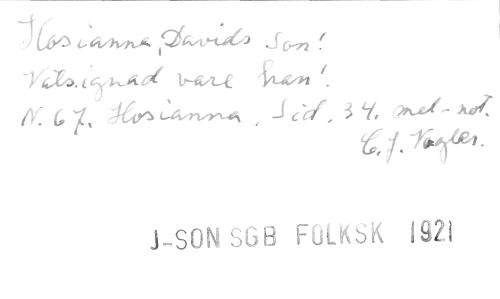 Hosianna, Davids Son!
Välsignad vare han!
N. 67. Hosianna. Sid. 34. mel-not.
C. J. Vogler.
J-SON SGB FOLKSK 1921